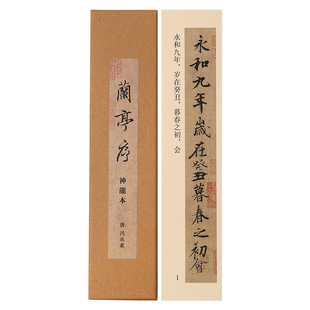 蘭亭序
神龍本
唐 馮承素
永和九年，岁在癸丑，暮春之初，会
永和九年歲在癸丑暮春之初會
1